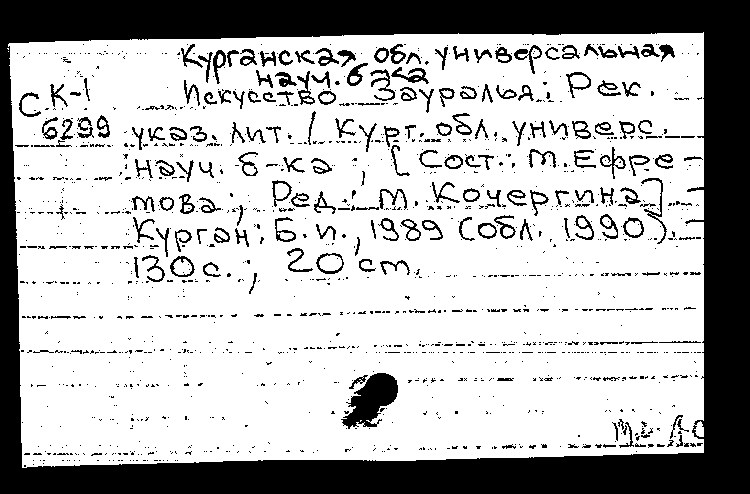 Курганская обл. универсальная
науч. б-ка
С.К-1
Искусство Зауралья: Рек.
6299
указ. лит. / Кург. обл. универс.
науч. б-ка ; [Сост.: М.Ефре-
мова; Ред.: М. Кочергина] -
Курган: Б.и., 1989 (обл. 1990). -
130 с. ; 20 cm.